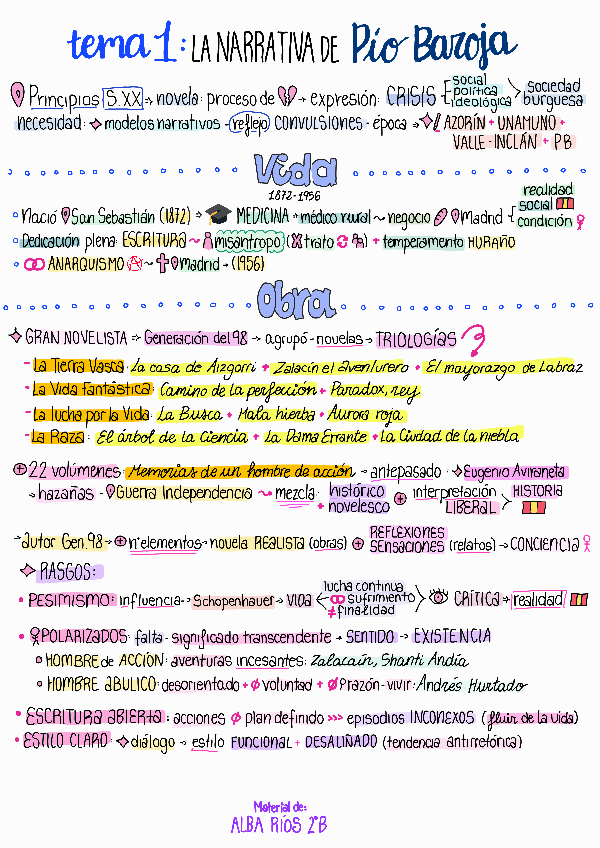 tema 1: LA NARRATIVA DE Pío Baroja
Principios S.XX → novela: proceso de → expresión: CRISIS social política ideológica sociedad burguesa
necesidad: modelos narrativos - reflejo CONVULSIONES - época → AZORÍN + UNAMUNO +
VALLE-INCLÁN + PB
Vida
1872-1956
Nació San Sebastián (1872) → MEDICINA → médico rural ~ negocio Madrid realidad social condición
Dedicación plena: ESCRITURA ~ misántropo (trato) + temperamento HURAÑO
ANARQUISMO ~ Madrid → (1956)
Obra
GRAN NOVELISTA → Generación del 98 → agrupó - novelas → TRIOLOGÍAS
- La Tierra Vasca: La casa de Aizgorri + Zalacín el aventurero + El mayorazgo de Labraz
- La Vida Fantástica: Camino de la perfección + Paradox, rey
- La lucha por la Vida: La Busca + Mala hierba + Aurora roja
- La Raza: El árbol de la Ciencia + La Dama Errante + La Ciudad de la niebla
⊕ 22 volúmenes: Memorias de un hombre de acción → antepasado: Eugenio Aviraneta
→ hazañas: Guerra Independencia ~ mezcla: histórico + novelesco ⊕ interpretación LIBERAL > HISTORIA
→ autor Gen.98 → ⊕ nº elementos → novela REALISTA (obras) ⊕ REFLEXIONES SENSACIONES (relatos) → CONCIENCIA
RASGOS:
• PESIMISMO: influencia → Schopenhauer → VIDA lucha continua sufrimiento ≠ finalidad CRÍTICA → realidad
• POLARIZADOS: falta - significado transcendente → SENTIDO → EXISTENCIA
HOMBRE de ACCIÓN: aventuras incesantes: Zalacaín, Shanti Andía
HOMBRE ABÚLICO: desorientado + ∅ voluntad + ∅ razón - vivir: Andrés Hurtado
• ESCRITURA ABIERTA: acciones ∅ plan definido >>> episodios INCONEXOS (fluir de la vida)
• ESTILO CLARO: diálogo → estilo FUNCIONAL + DESALIÑADO (tendencia antirretórica)
Material de:
ALBA RÍOS 2ºB